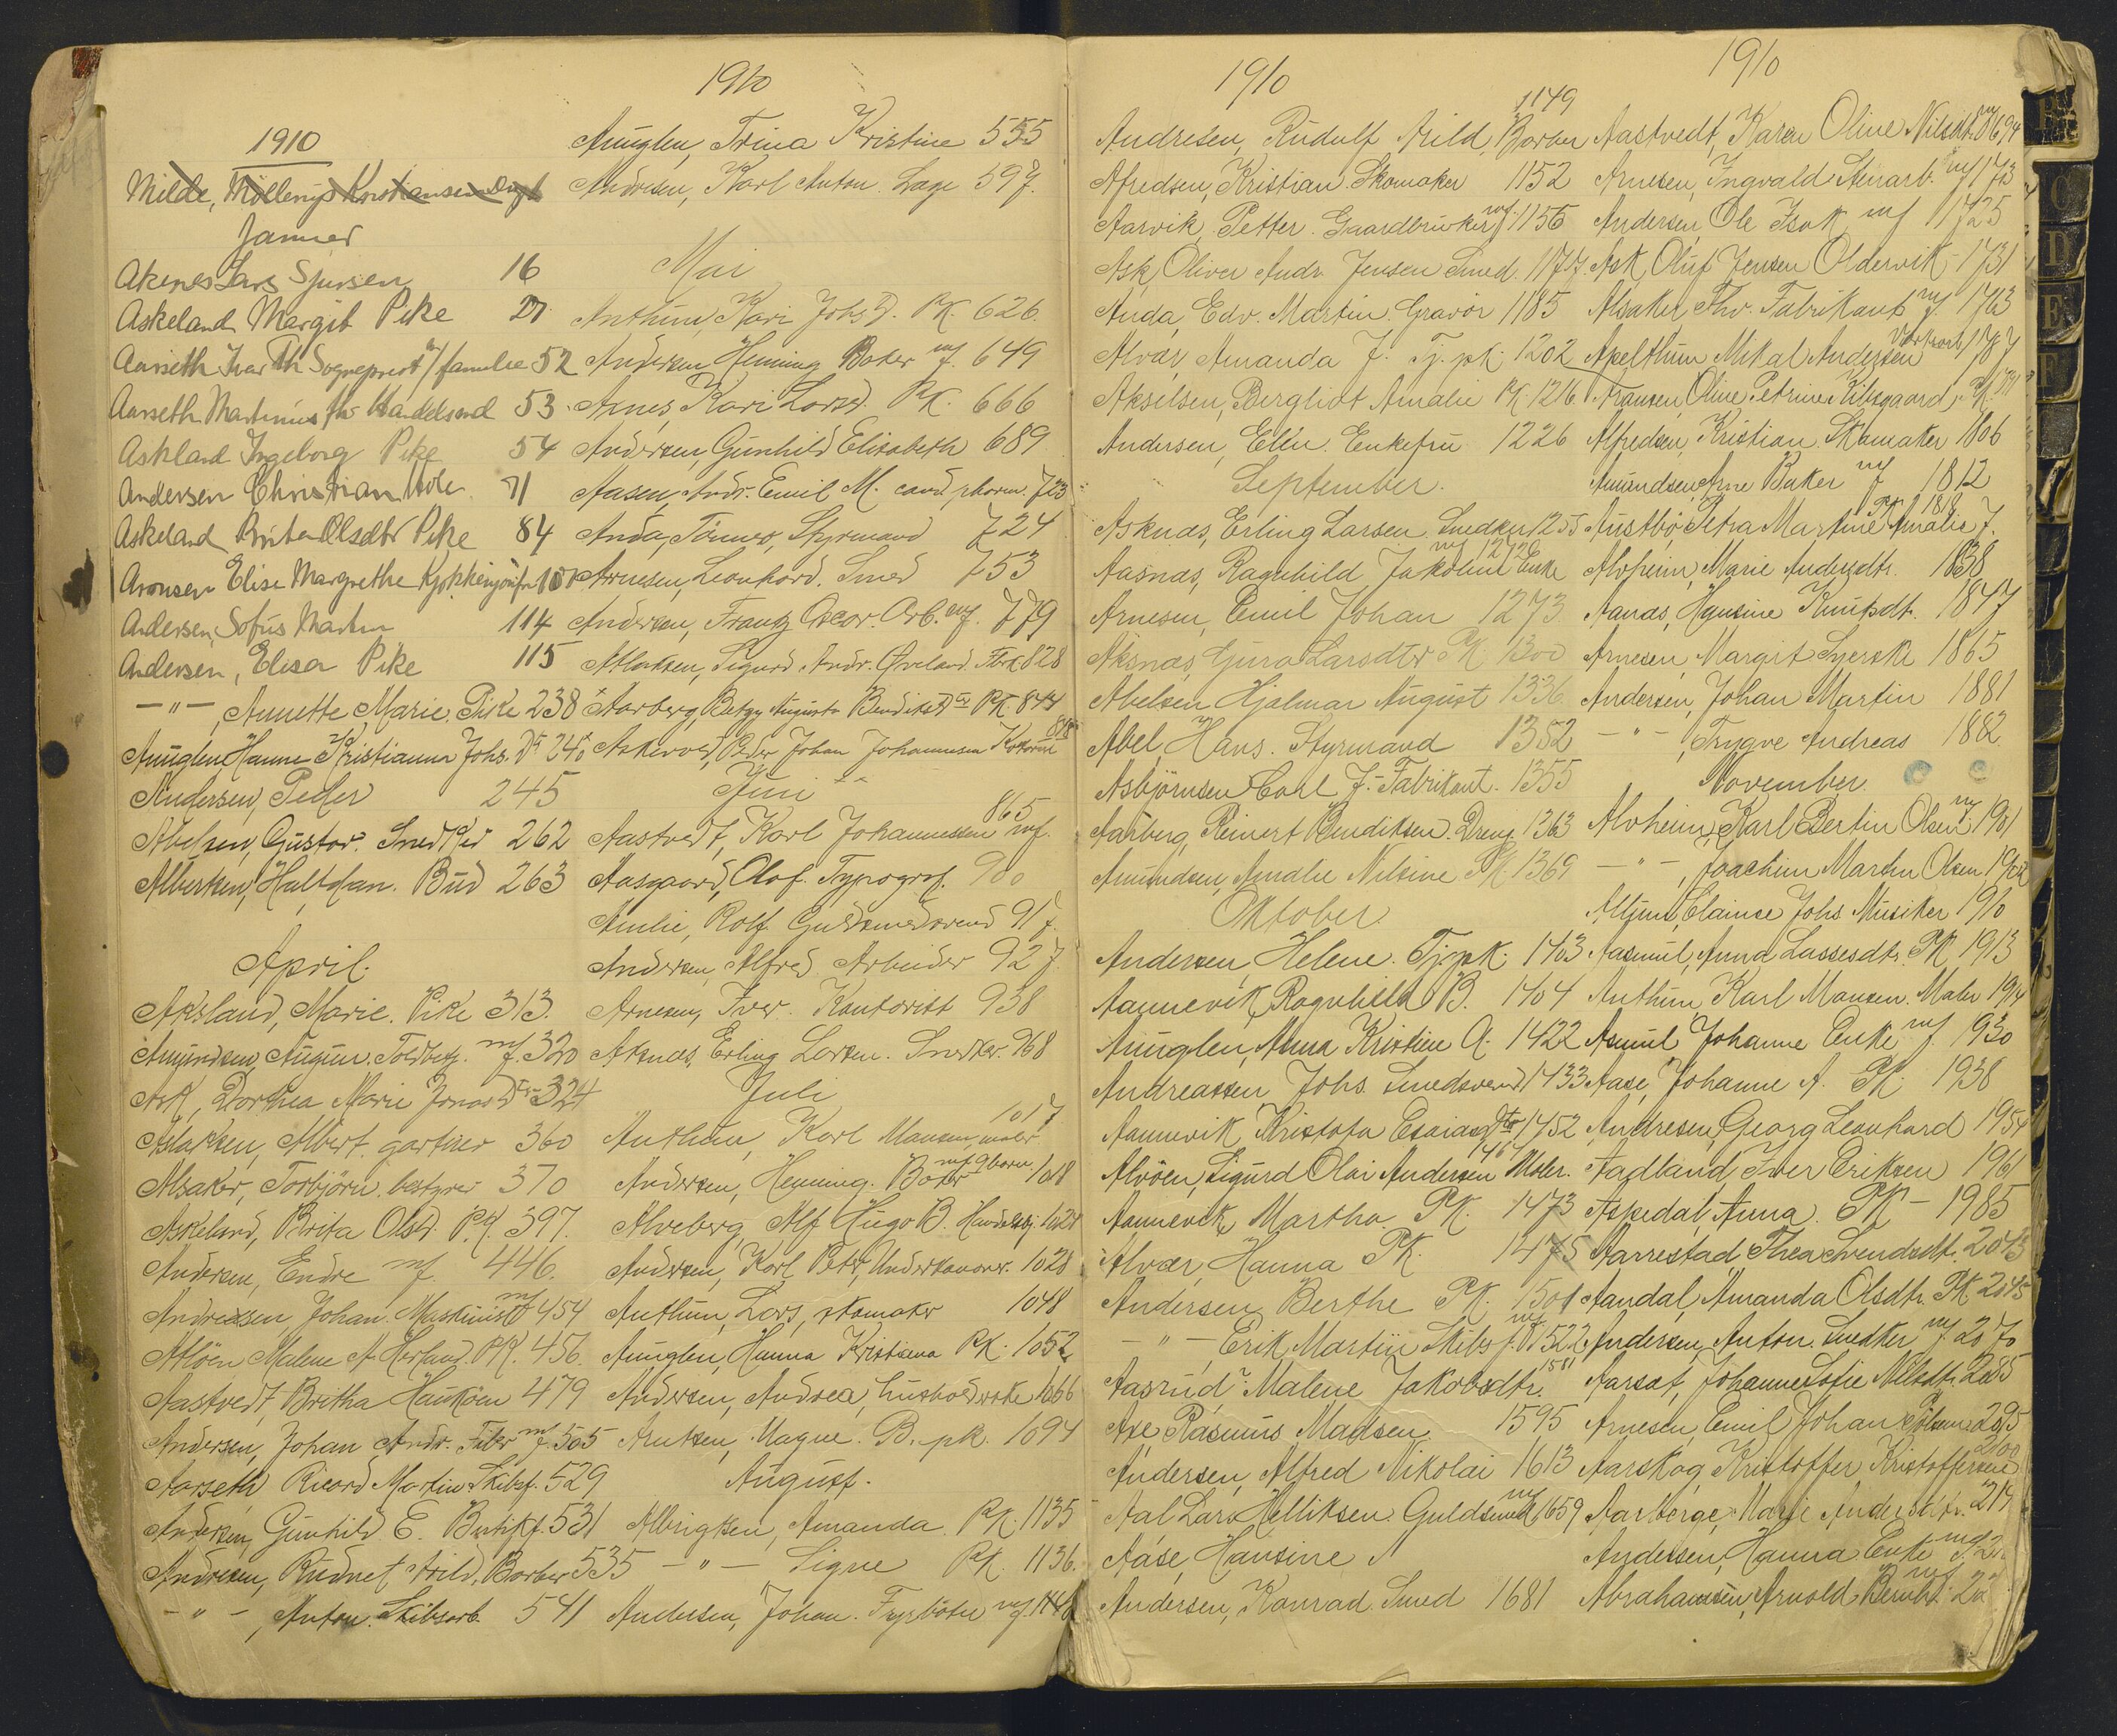 1910
Milde,
Januar
Akenes Lars Sjursen 16
Askeland Margit Pike 27
Aarseth Iver Th Sogneprest m/familie 52
Aarseth Martinus 53
Askland Ingeborg Pike 54
Andersen Christian 71
Askeland Olsdtr Pike 84
Aronsen Elise Margrethe
Andersen, Sofus Martin 114
Andersen, Elisa Pike 115
— " —, Annette Marie, Pike 238
Amuglen, Hanna Kristianna Johs. Dtr 240
Andersen, Peder 245
Abelsen, Gustav. Snedker 262
Albertsen, Halfdan. Bud 263
April.
Aksland, Marie. Pike 313.
Amundsen, August. Toldbetj. mf. 320
Ask, Dorthea Marie Jonas Dtr 324
Aslaksen, Albert. gartner 360
Alsaker, Torbjörn, bestyrer 370
Askeland, Brita Olsd. P.K. 397.
Andersen, Endre mf. 446.
Andreassen, Johan. Maskinist mf 454
Alföen Malene A. Herland. PK. 456.
Aastvedt, Britha Haukøen 479
Andersen, Johan Andr. mf. 505
Aarseth Ricard Martin Skibsf. 529
Andersen, Gunhild E. Butikf. 531
Andresen, Arild, Barber 535
— " —, Anton. Skibsarb. 541
1910
Amuglen, Trina Kristine 555
Andresen, Karl Anton. Lage 597.
Mai
Anthun, Kari Johs D. PK. 626
Andersen Henning Boker mf. 649
Aknes, Kari Larsd. PK. 666
Andersen, Gunhild Elisabeth 689
Aasen, Andr. Emil M. cand. pharm. 723
Anda, Tönnes, Styrmand 724
Arnesen, Leonhard. Smed 753
Andersen, Frantz Oscar. Arb. mf. 779
Aslaksen, Sigurd Andr. 828
Aarberg, Betzy Augusta Bendiksdtr PK. 844
Askevold, Peder Johan Johannesen 848
Juni
Aastvedt, Karl Johannessen mf. 865
Aasgaard, Olaf. Typograf. 900
Amlie, Rolf. Guldsmedsvend 917.
Andersen, Alfred Arbeider 927
Arnesen, Iver. Kontorist 938
Aksnes, Erling Larsen. Snedker. 968
Juli
Anthun, Karl Monsen, maler. 1017
Andersen, Henning. Böker mf. 9 barn. 1018
Alveberg, Alf Hugo B. Handelsbj. 1024
Andersen, Karl Petr, Underkanoner. 1028
Anthun, Lars, skomaker 1048
Amuglen, Hanna Kristiana PK. 1052
Andersen, Andrea, husholderske 1066
Knutsen, Magne. B. pk. 1094
August.
Albrigtsen, Amanda. PK. 1135
— " — Signe PK. 1136.
Andersen, Johan. Fyrböter mf. 1148
1910
Andresen, Rudolf Arild, Barber 1149
Alfredsen, Kristian Skomaker 1152
Aarvik, Petter. Gaardbruker mf. 1156
Ask, Oliver Andr. Jensen Smed. 1177.
Anda, Edv. Martin. Gravör 1185
Alvær, Amanda J. Tj. pk. 1202
Akselsen, Bergliot Amalie PK. 1216
Andersen, Elen. Enkefru 1226
September.
Asknæs, Erling Larsen Snedker 1255
Aasnæs, Ragnhild Jakobine Enke mf 1272
Arnesen, Emil Johan 1273
Aksnæs, Guro Larsdtr PK 1300
Abelsen Hjalmar August 1336
Abel, Hans. Styrmand 1352
Asbjörnsen Carl J. Fabrikant. 1355
Aarberg, Reinert Bendiksen. Dreng 1363
Amundsen, Amalie Nilsine PK. 1369
Oktober.
Andersen, Helene. Tj. pk. 1403
Aannevik, Ragnhild B. 1404
Amuglen, Anna Kristine A. 1422
Andreassen, Johs. Smedsvend 1433
Aannevik, Kristofa Esaiasdtr 1452
Alvöen, Sigurd Olai Andersen Maler. 1464
Aannevik, Martha. PK. 1473
Alvær, Hanna PK. 1475
Andersen, Berthe PK. 1501
— " — Erik Martin Skibsf. mf 1522
Aasrud, Malene Jakobsdtr. 1581
Axe Rasmus Madsen. 1595
Andersen, Alfred Nikolai 1613
Aal Lars Helliksen. Guldsmed mf 1659
Aase, Hansine
Andersen, Konrad. Smed 1681
1910
Aastvedt, Karen Oline Nilsdt. 1694
Arnesen, Ingvald Stenarb. mf 1713
Andersen, Ole Isak mf 1725
Ask, Oluf Jensen Oldervik 1731
Alsaker, Thv. Fabrikant mf. 1763
Apelthun Mikal Andersen 1787
Fransen, Oline Petrine Kilsgaard, PK. 1791
Alfredsen, Kristian. Skomaker 1806
Amundsen, Arne Baker mf 1812
Austbø Petra Martine Amalie J. PK. 1818
Alvheim, Marie Andersdtr. 1838
Aanæs, Hansine Knutsdt. 1847
Arnesen, Margit Syerske 1865
Andersen, Johan Martin 1881
— " —, Trygve Andreas 1882
November.
Alvheim, Karl Bertin Olsen mf. 1901
— " —, Joachim Martin Olsen 1902
Johs Musiker 1910
Aasmul, Anna Lassesdtr. PK 1913
Anthun Karl Monsen. Maler 1914
Asmul Johanne Enke mf. 1930
Aase, Johanne A. PK. 1938
Andresen, Georg Leonhard 1954
Aadland, Iver Eriksen 1961
Aspedal, Anna. PK - 1985
Aarrestad, Thea Svendsdt. 2043
Aandal, Amanda Olsdtr. PK 2045
Andersen, Anton. Snedker mf 2070
Aarsæt, Johanne Sofie Nilsdtr. 2085
Arnesen, Emil Johan 2095
Aarskog, Kristoffer Kristoffersen 2100
Aarberge, Marie Andersdtr. 217
Andersen, Hanna Enke mf. 2
Abrahamsen, Arnold Bernh. mf 22
C
D
E
F